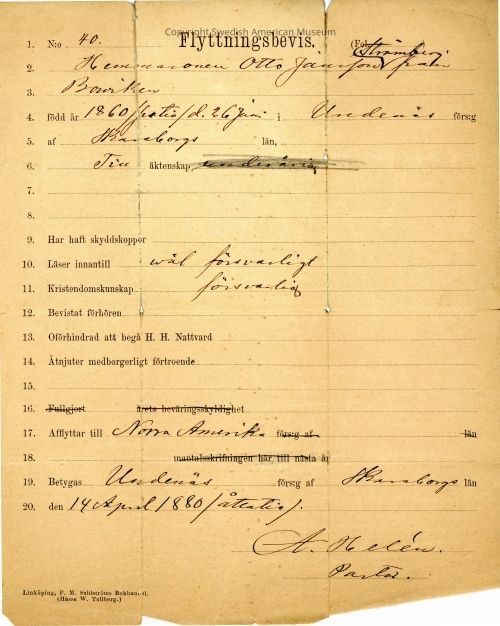 Copyright Swedish American Museum
1. N:o 40. Flyttningsbevis. (Fol.
Strömberg
2. Hemmasonen Otto Jansson från
3.
4. född år 1860 /sextio/ d. 26 Juni i Undenäs förs:g
5. af Skaraborgs län,
6. Till äktenskap,
7.
8.
9. Har haft skyddskoppor
10. Läser innantill wäl försvarligt
11. Kristendomskunskap försvarlig
12. Bevistat förhören
13. Oförhindrad att begå H. H. Nattvard
14. Åtnjuter medborgerligt förtroende.
15.
16. Fullgjort årets beväringsskyldighet
17. Afflyttar till Norra Amerika förs:g af län
18. mantalsskrifningen här till nästa år
19. Betygas Undenäs förs:g af Skaraborgs län
20. den 14 April 1880 /åttatio/.
A. Helén.
Pastor.
Linköping, P. M. Sahlströms Bokhandel.
(Hasse W. Tullberg.)